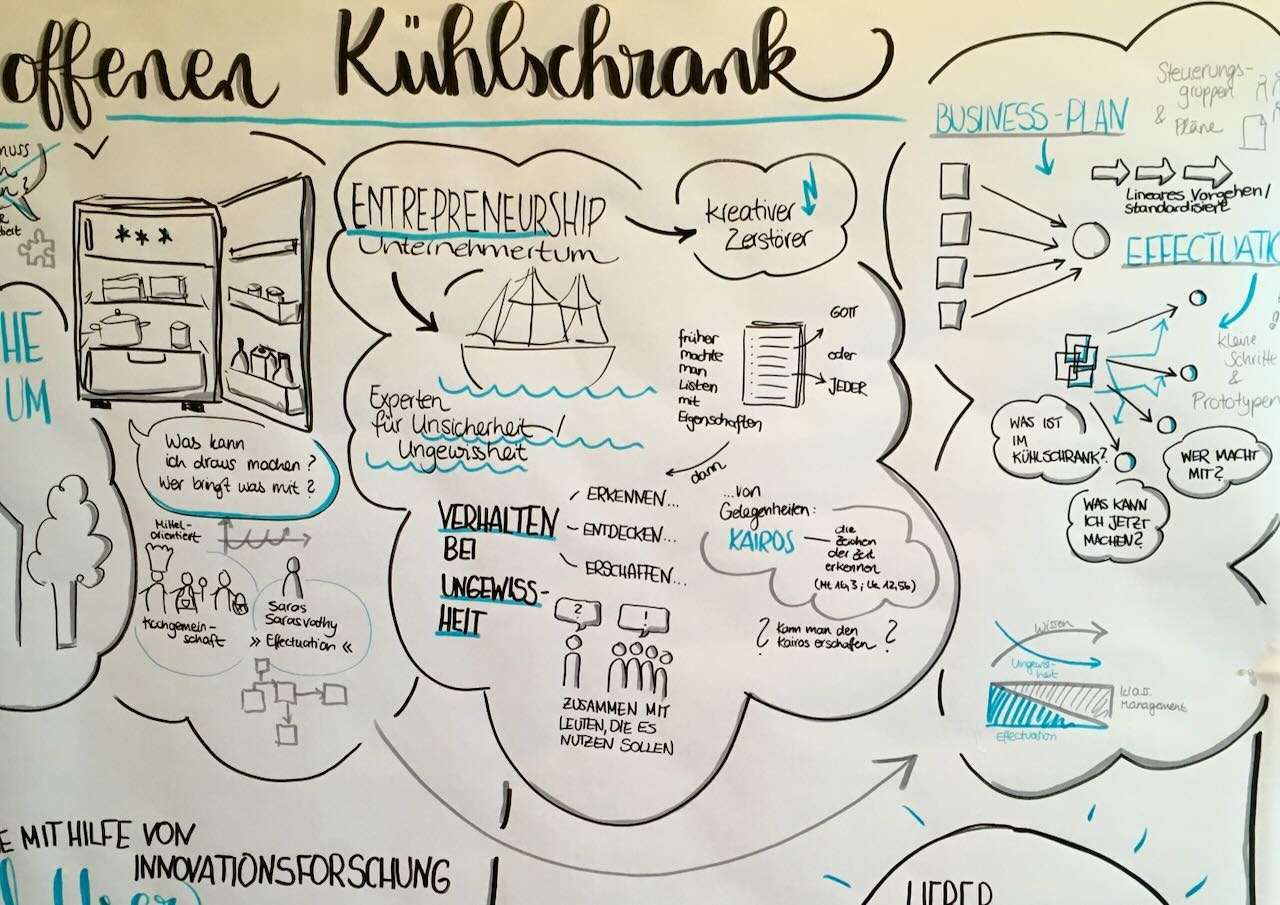 offenen Kühlschrank
muss
HE
UM
Was kann
ich draus machen?
Wer bringt was mit?
Mittel-
orientiert
Kochgemein-
schaft
Saras
Sarasvathy
» Effectuation «
ENTREPRENEURSHIP
Unternehmertum
kreativer
Zerstörer
Experten
für Unsicherheit/
Ungewissheit
früher
machte
man
Listen
mit
Eigenschaften
GOTT
oder
JEDER
dann
VERHALTEN
BEI
UNGEWISS-
HEIT
ERKENNEN...
ENTDECKEN...
ERSCHAFFEN...
...von
Gelegenheiten:
KAIROS
die
Zeichen
der Zeit
erkennen
(Mt 16,3; Lk 12,56)
? Kann man den ?
Kairos erschaffen
?
!
ZUSAMMEN MIT
LEUTEN, DIE ES
NUTZEN SOLLEN
BUSINESS-PLAN
Steuerungs-
gruppen
& Pläne
Lineares Vorgehen/
standardisiert
EFFECTUATIO
kleine
Schritte
&
Prototypen
WAS IST
IM
KÜHLSCHRANK?
WER MACHT
MIT?
WAS KANN
ICH JETZT
MACHEN?
Wissen
Ungewiss-
heit
klas.
Management
Effectuation
E MIT HILFE VON
INNOVATIONSFORSCHUNG
LIEBER